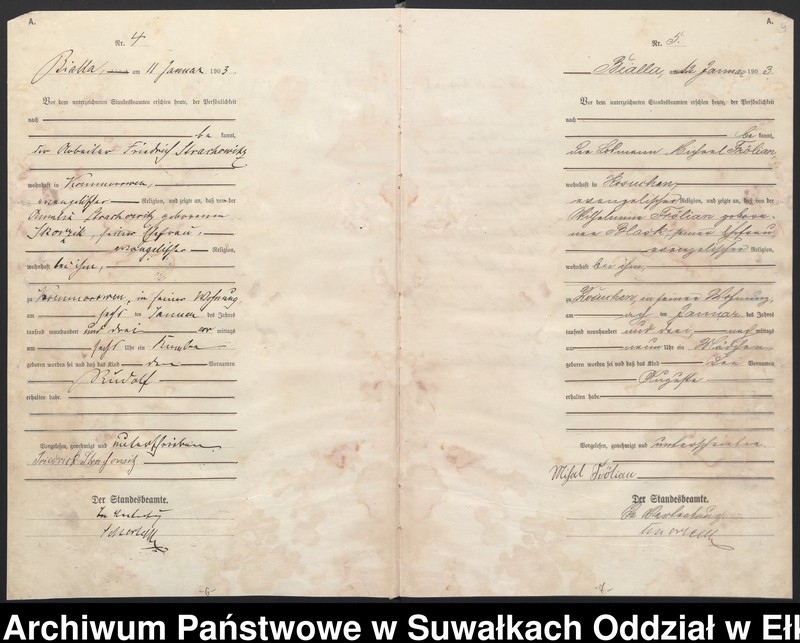 A.
Nr. 4
Bialla, am 11 Januar 1903.
Vor dem unterzeichneten Standesbeamten erschien heute, der Persönlichkeit
nach
be kannt,
der Arbeiter Friedrich Strachowitz
wohnhaft in Kommorowen,
evangelischer Religion, und zeigte an, daß von der
Amalie Strachowitz geborenen
Skorzik, seiner Ehefrau,
evangelischer Religion,
wohnhaft bei ihm,
zu Kommorowen, in seiner Wohnung,
am sechs ten Januar des Jahres
tausend neunhundert und drei vor mittags
um sechs Uhr ein Knabe
geboren worden sei und daß das Kind den Vornamen
Rudolf
erhalten habe.
Vorgelesen, genehmigt und unterschrieben.
Friedrich Strachowitz
Der Standesbeamte.
In Vertretung
-6-
A.
Nr. 5.
Bialla, am 12 Januar 1903.
Vor dem unterzeichneten Standesbeamten erschien heute, der Persönlichkeit
nach
be kannt,
der Losmann Michael Frölian,
wohnhaft in
evangelischer Religion, und zeigte an, daß von der
Wilhelmine Frölian gebore-
nen Blask, seiner Ehefrau,
evangelischer Religion,
wohnhaft bei ihm,
zu in seiner Wohnung,
am ach ten Januar des Jahres
tausend neunhundert und drei, nach mittags
um neun Uhr ein Mädchen
geboren worden sei und daß das Kind den Vornamen
Auguste
erhalten habe.
Vorgelesen, genehmigt und unterschrieben.
Mihal Frölian
Der Standesbeamte.
In Vertretung
Archiwum Państwowe w Suwałkach Oddział w Ełk